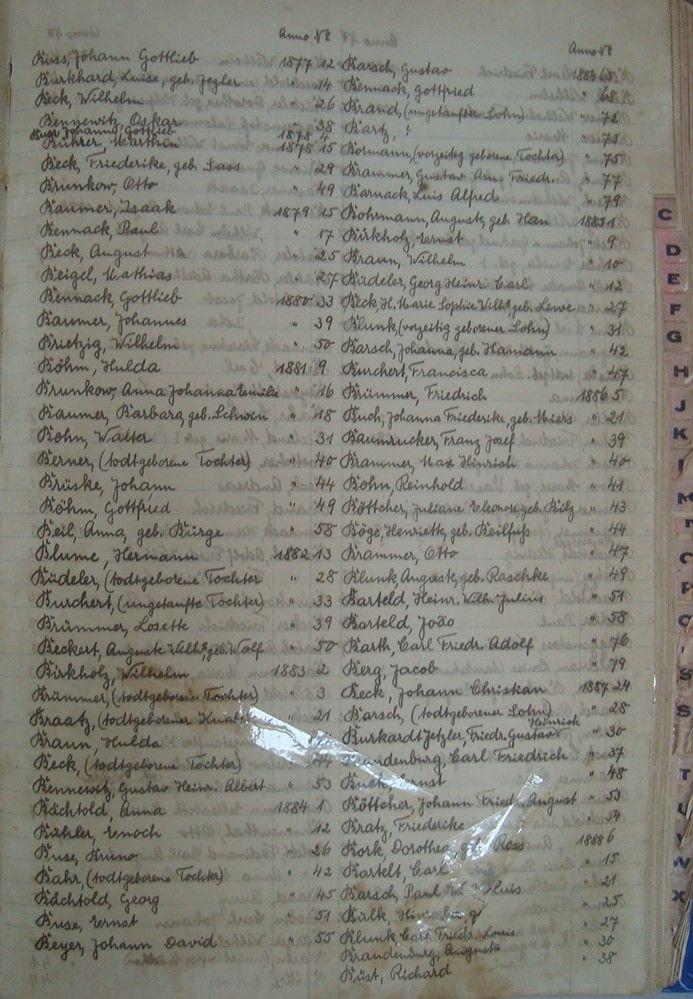 Anno No
Buss, Johann Gottlieb 1877 12
Burkhard, Luise, geb. Jegler " 14
Beck, Wilhelm " 26
Bennewitz, Oskar " 38
Buss Johann, Gottlieb 1878 4
Bührer, Marthin 1878 15
Beck, Friederike, geb. Sass " 29
Brunkow, Otto " 49
Baumer, Isaak 1879 15
Bennack, Paul " 17
Beck, August " 25
Beigel, Mathias " 27
Bennack, Gottlieb 1880 33
Baumer, Johannes " 39
Brietzig, Wilhelm " 50
Böhm, Hulda 1881 9
Brunkow, Anna Johanna Emilie " 16
Baumer, Barbara, geb. Schwin " 18
Bohn, Walter " 31
Berner, (todtgeborene Tochter) " 40
Brüske, Johann " 44
Böhm, Gottfried " 49
Beil, Anna, geb. Bürge " 58
Blume, Hermann 1882 13
Büdeler, (todtgeborene Tochter " 28
Burchert, (ungetaufte Tochter) " 33
Brümmer, Losette " 39
Beckert, Auguste Wilh. geb. Wolf " 50
Birkholz, Wilhelm 1883 2
Brümmer, (todtgeborene Tochter) " 3
Braatz, (todtgeborener Knabe) " 21
Braun, Hulda
Beck, (todtgeborene Tochter) " 44
Bennewitz, Gustav Heinr. Albert " 53
Bächtold, Anna 1884 1
Bühler, Enoch " 12
Buse, Bruno " 26
Bahr, (todtgeborene Tochter) " 42
Bächtold, Georg " 45
Buse, Ernst " 51
Beyer, Johann David " 55
Anno No
Barsch, Gustav 1884 65
Bennack, Gottfried " 68
Brand, (ungetaufter Sohn) " 72
Bartz, " 73
Bormann, (vorzeitig geborene Tochter) " 75
Brammer, Gustav Arn. Friedr. " 77
Barnack, Luis Alfred " 79
Bohrmann, August, geb. Han 1885 1
Birkholz, Ernst " 9
Braun, Wilhelm " 10
Büdeler, Georg Heinr. Carl " 12
Beck, H. Marie Sophie Wilh. geb. Lewe " 27
Blunk, (vorzeitig geborener Sohn) " 31
Barsch, Johanna, geb. Hamann " 42
Burchert, Francisca " 47
Brümmer, Friedrich 1886 5
Buch, Johanna Friederike, geb. Miers " 21
Baumrucker, Franz Josef " 39
Brammer, Max Hinrich " 40
Bohn, Reinhold " 41
Böttcher, Juliane Eleonore geb. Bilz " 43
Böge, Henriette, geb. Beilfuss " 44
Brammer, Otto " 47
Blunk, August, geb. Raschke " 49
Barteld, Heinr. Wilh. Julius " 51
Barteld, João " 58
Barth, Carl Friedr. Adolf " 76
Berg, Jacob " 79
Beck, Johann Christian 1887 24
Barsch, (todtgeborener Sohn) " 28
Burkardt Jetzler, Friedr. Gustav Heinrich " 30
Brandenburg, Carl Friedrich " 37
Ernst " 48
Böttcher, Johann Friedr. August " 53
Bratz, Friederike " 54
Bork, Dorothea, geb. Ross 1888 6
Bartelt, Carl " 15
Barsch, Paul " 21
Bülk, " 25
Blunk Carl Friedr. Louis " 27
Brandenburg, Auguste " 30
Büst, Richard " 38
C
D
E
F
G
H
J
K
L
M
N
O
P
Q
S
S
T
U
V
W
X